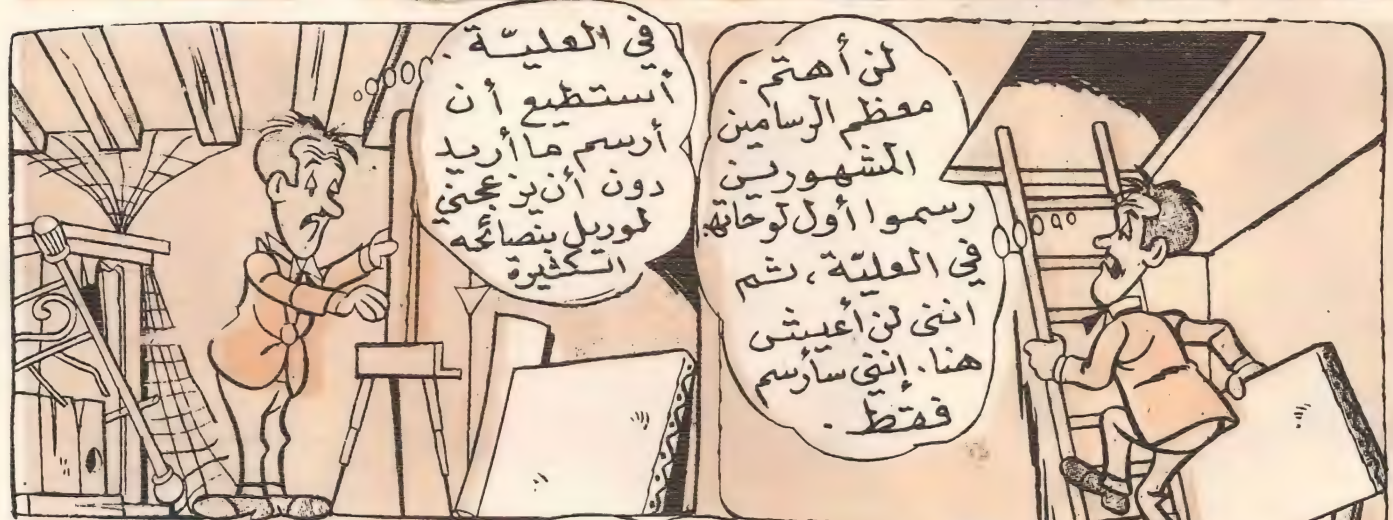 لن أهتم.
معظم الرسامين
المشهورين
رسموا أول لوحاتهم
في العليّة، ثم
انني لن أعيش
هنا. إنني سأرسم
فقط.
في العليّة
أستطيع أن
أرسم ما أريد
دون أن يزعجني
لوريل بنصائحه
الكثيرة